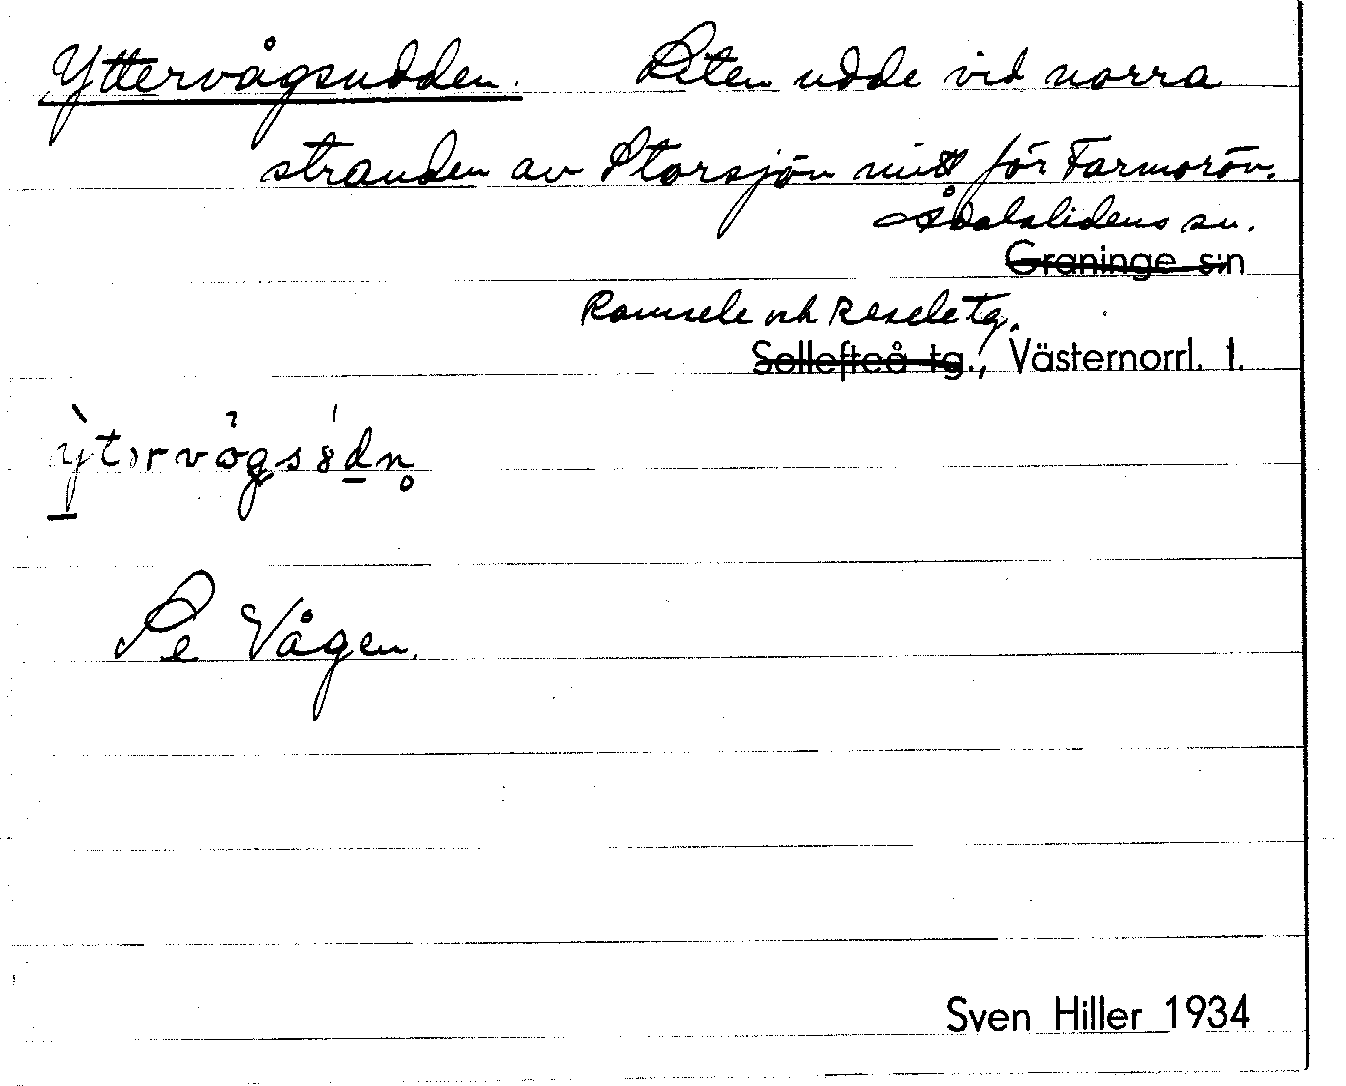 Yttervågsudden. Liten udde vid norra
stranden av Storsjön mitt för Farmorön.
Ådalslidens sn.
Graninge s:n
Ramsele och Resele tg.
Sollefteå tg., Västernorrl. l.
Se Vågen.
Sven Hiller 1934